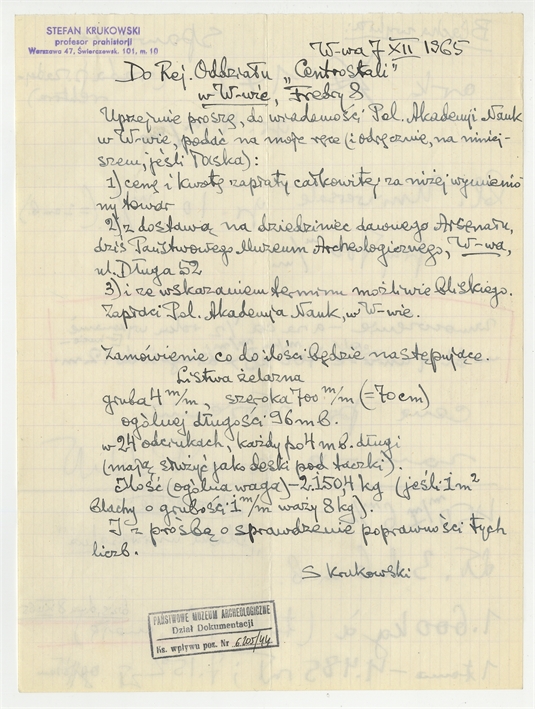 STEFAN KRUKOWSKI
profesor prahistorji
Warszawa 47, Świerczewsk. 101, m. 10
W-wa 7 XII 1965
Do Rej. Oddziału „Centrostali"
w W-wie, Freta 8.
Uprzejmie proszę, do wiadomości Pol. Akademji Nauk
w W-wie, podać na moje ręce (i odręcznie, na niniej-
szem, jeśli łaska):
1) cenę i kwotę zapłaty całkowitej za niżej wymienio-
ny towar
2) z dostawą na dziedziniec dawnego Arsenału,
dziś Państwowego Muzeum Archeologicznego, W-wa,
ul. Długa 52
3) i ze wskazaniem terminu możliwie bliskiego.
Zapłaci Pol. Akademja Nauk, w W-wie.
Zamówienie co do ilości będzie następujące.
Listwa żelazna
gruba 4 m/m, szeroka 700 m/m (=70 cm)
ogólnej długości 96 mb.
w 24 odcinkach, każdy po 4 mb. długi
(mają służyć jako deski pod taczki).
Ilość (ogólna waga) – 2.150,4 kg (jeśli 1 m²
blachy o grubości 1 m/m waży 8 kg).
I z prośbą o sprawdzenie poprawności tych
liczb.
S Krukowski
PAŃSTWOWE MUZEUM ARCHEOLOGICZNE
Dział Dokumentacji
Ks. wpływu poz. Nr